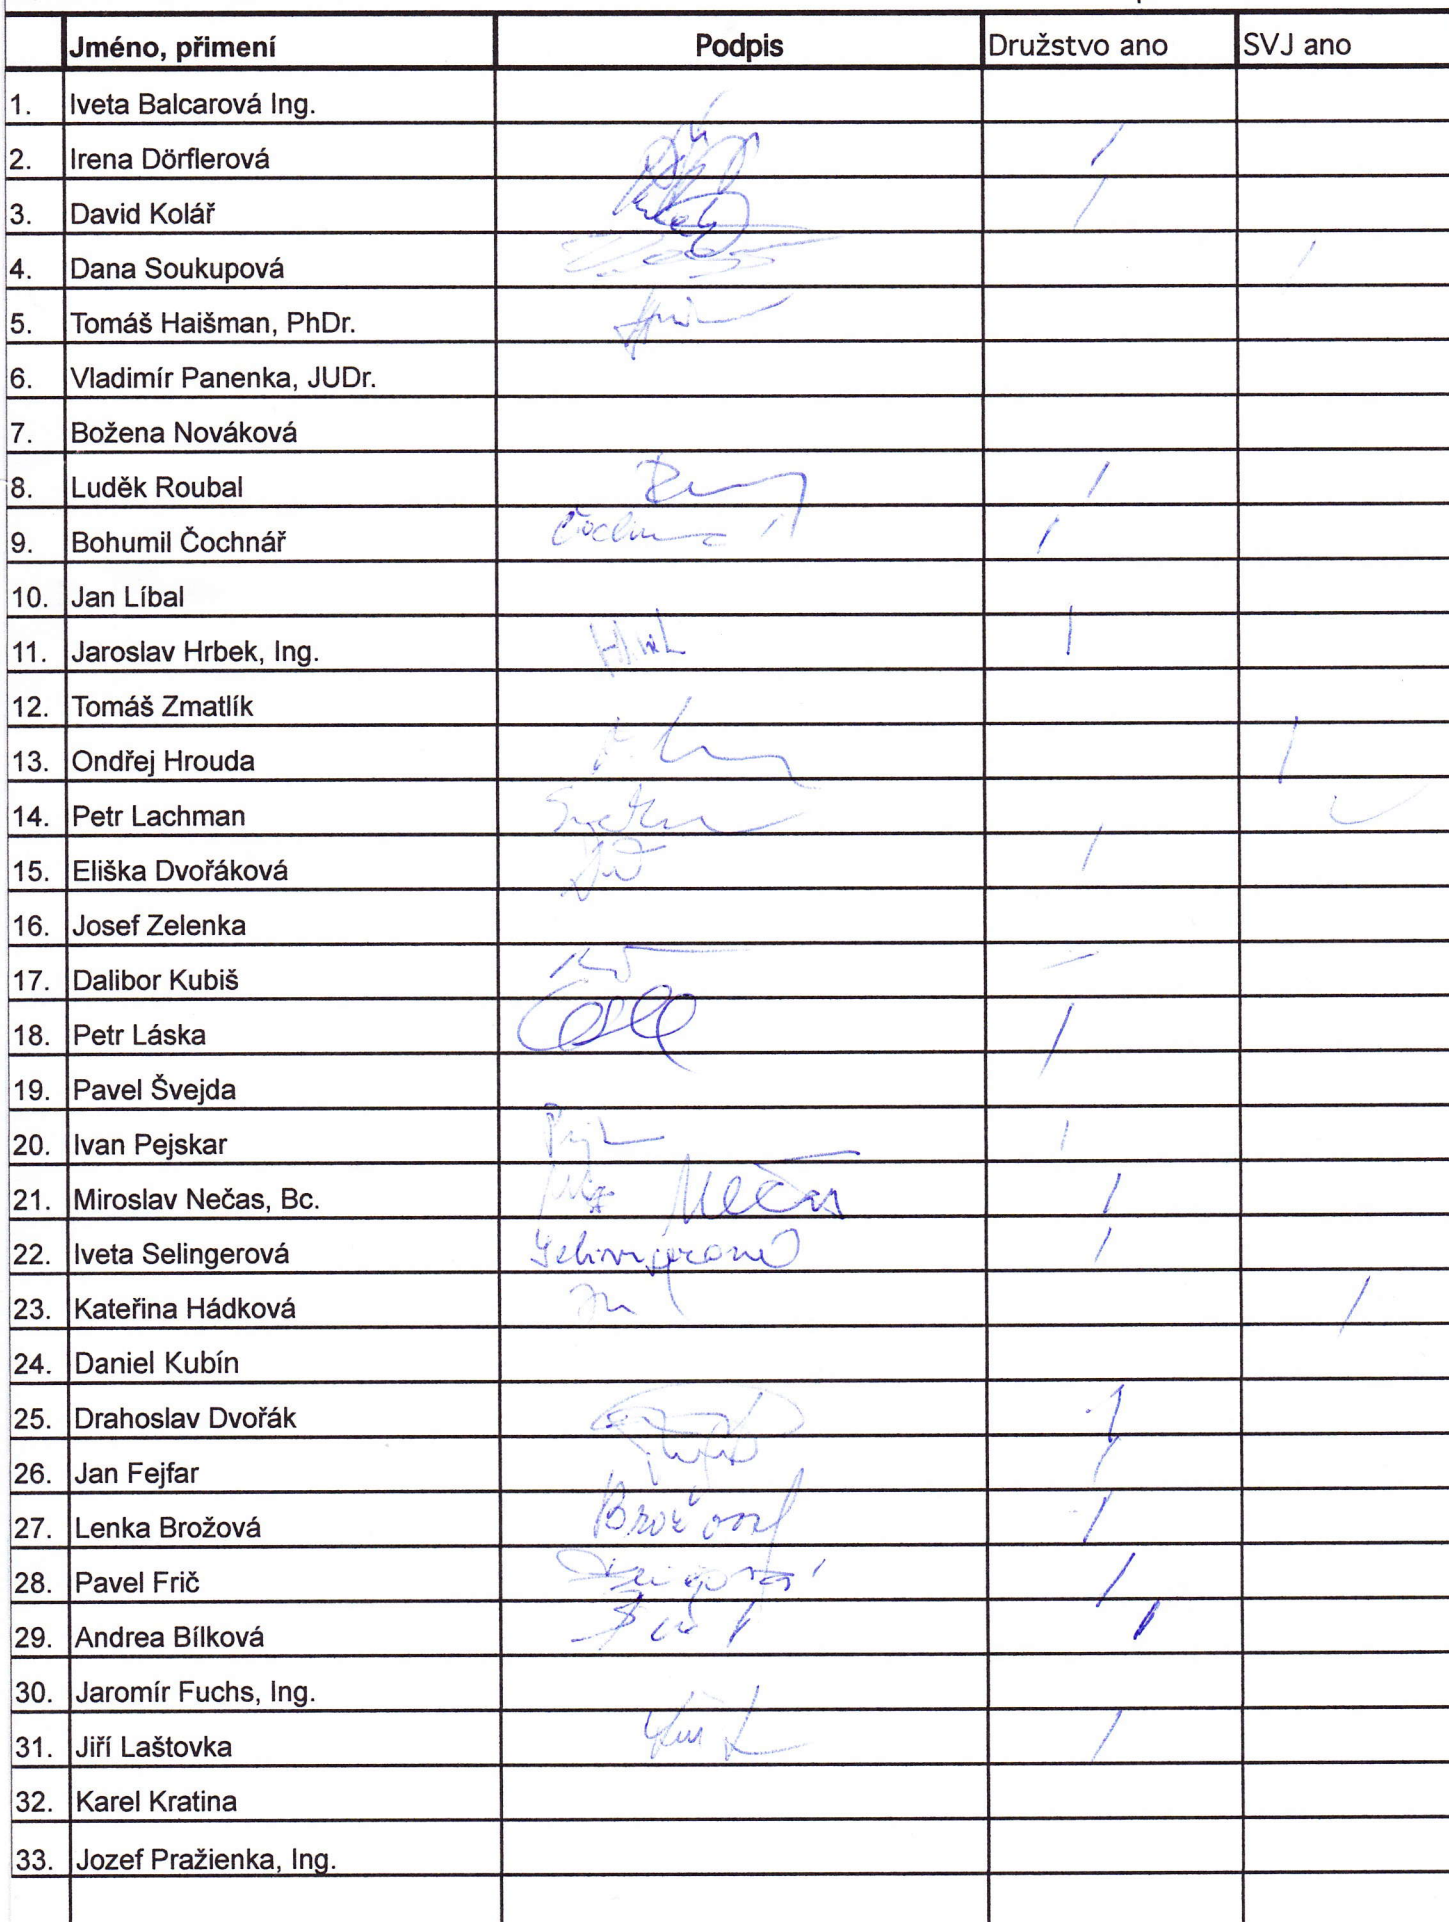 Jméno, přimení Podpis Družstvo ano SVJ ano
1. Iveta Balcarová Ing.
2. Irena Dörflerová /
3. David Kolář /
4. Dana Soukupová /
5. Tomáš Haišman, PhDr.
6. Vladimír Panenka, JUDr.
7. Božena Nováková
8. Luděk Roubal /
9. Bohumil Čochnář /
10. Jan Líbal
11. Jaroslav Hrbek, Ing. /
12. Tomáš Zmatlík
13. Ondřej Hrouda /
14. Petr Lachman
15. Eliška Dvořáková /
16. Josef Zelenka
17. Dalibor Kubiš
18. Petr Láska /
19. Pavel Švejda
20. Ivan Pejskar /
21. Miroslav Nečas, Bc. Nečas /
22. Iveta Selingerová Selingerová /
23. Kateřina Hádková /
24. Daniel Kubín
25. Drahoslav Dvořák /
26. Jan Fejfar /
27. Lenka Brožová Brožová /
28. Pavel Frič /
29. Andrea Bílková /
30. Jaromír Fuchs, Ing.
31. Jiří Laštovka /
32. Karel Kratina
33. Jozef Pražienka, Ing.